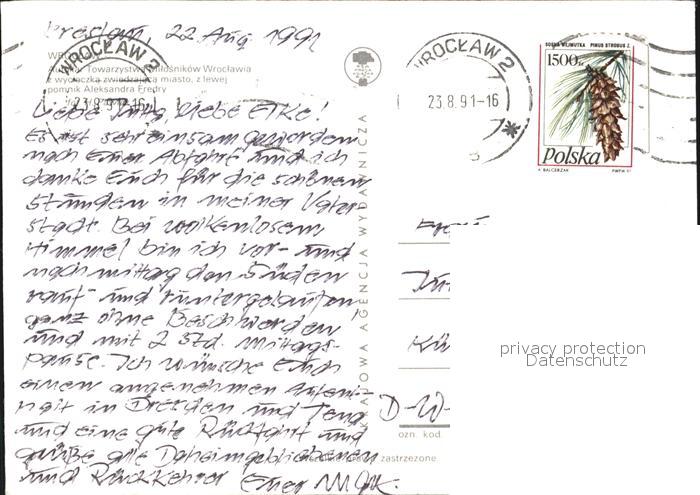 Breslau, 22 Aug 1991
WROCŁAW 2
Towarzystwo Miłośników Wrocławia
z wycieczką zwiedzającą miasto, z lewej
pomnik Aleksandra Fredry
23.8.91-16
Liebe liebe Elke!
Es ist sehr einsam geworden
nach Eurer Abfahrt und ich
danke Euch für die schönen
Stunden in meiner Vater-
stadt. Bei wolkenlosem
Himmel bin ich vor- und
nachmittag den Süden
rauf- und runtergelaufen
ganz ohne Beschwerden
und mit 2 Std. Mittags-
pause. Ich wünsche Euch
einen angenehmen Aufent-
halt in Dresden und
und eine gute Rückfahrt und
grüße alle Daheimgebliebenen
und Rückkehrer Euer
KRAJOWA AGENCJA WYDAWNICZA
WROCŁAW 2
23.8.91-16
SOSNA WEJMUTKA PINUS STROBUS L.
1500 zł
Polska
A. BALCERZAK PWPW 91
D-W-
ozn. kod.
zastrzeżone
privacy protection
Datenschutz